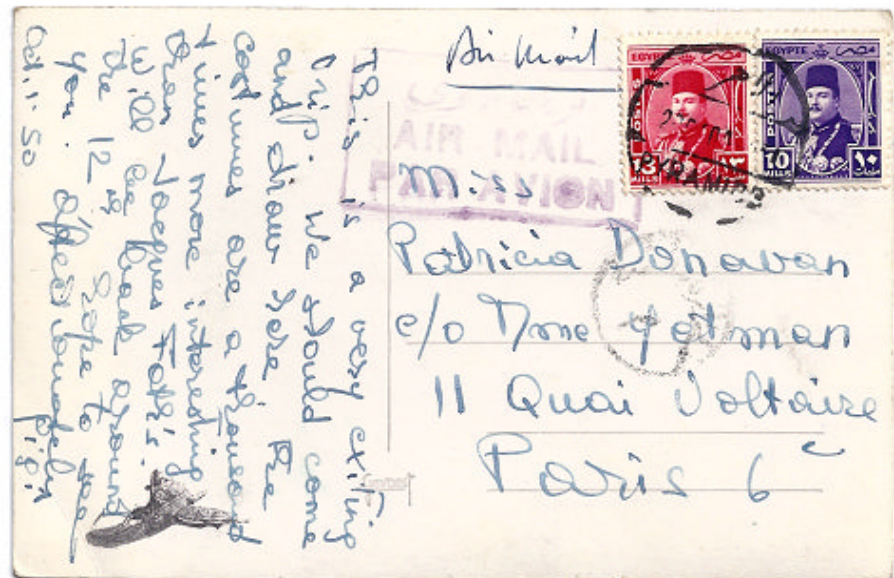 Air Mail
EGYPTE
مصر
POSTES
13
١٣
MILLS
EGYPTE
مصر
POSTES
10
١٠
MILLS
PYRAMIDS
AIR MAIL
PAR AVION
Miss
Patricia Donavan
c/o Mme Yatman
11 Quai Voltaire
Paris 6e
This is a very exiting
trip. We should come
and draw here the
costumes are a thousand
times more interesting
than Jacques Fath's.
Will be back around
the 12th hope to see
you. Affectionately
Oct. 1. 50